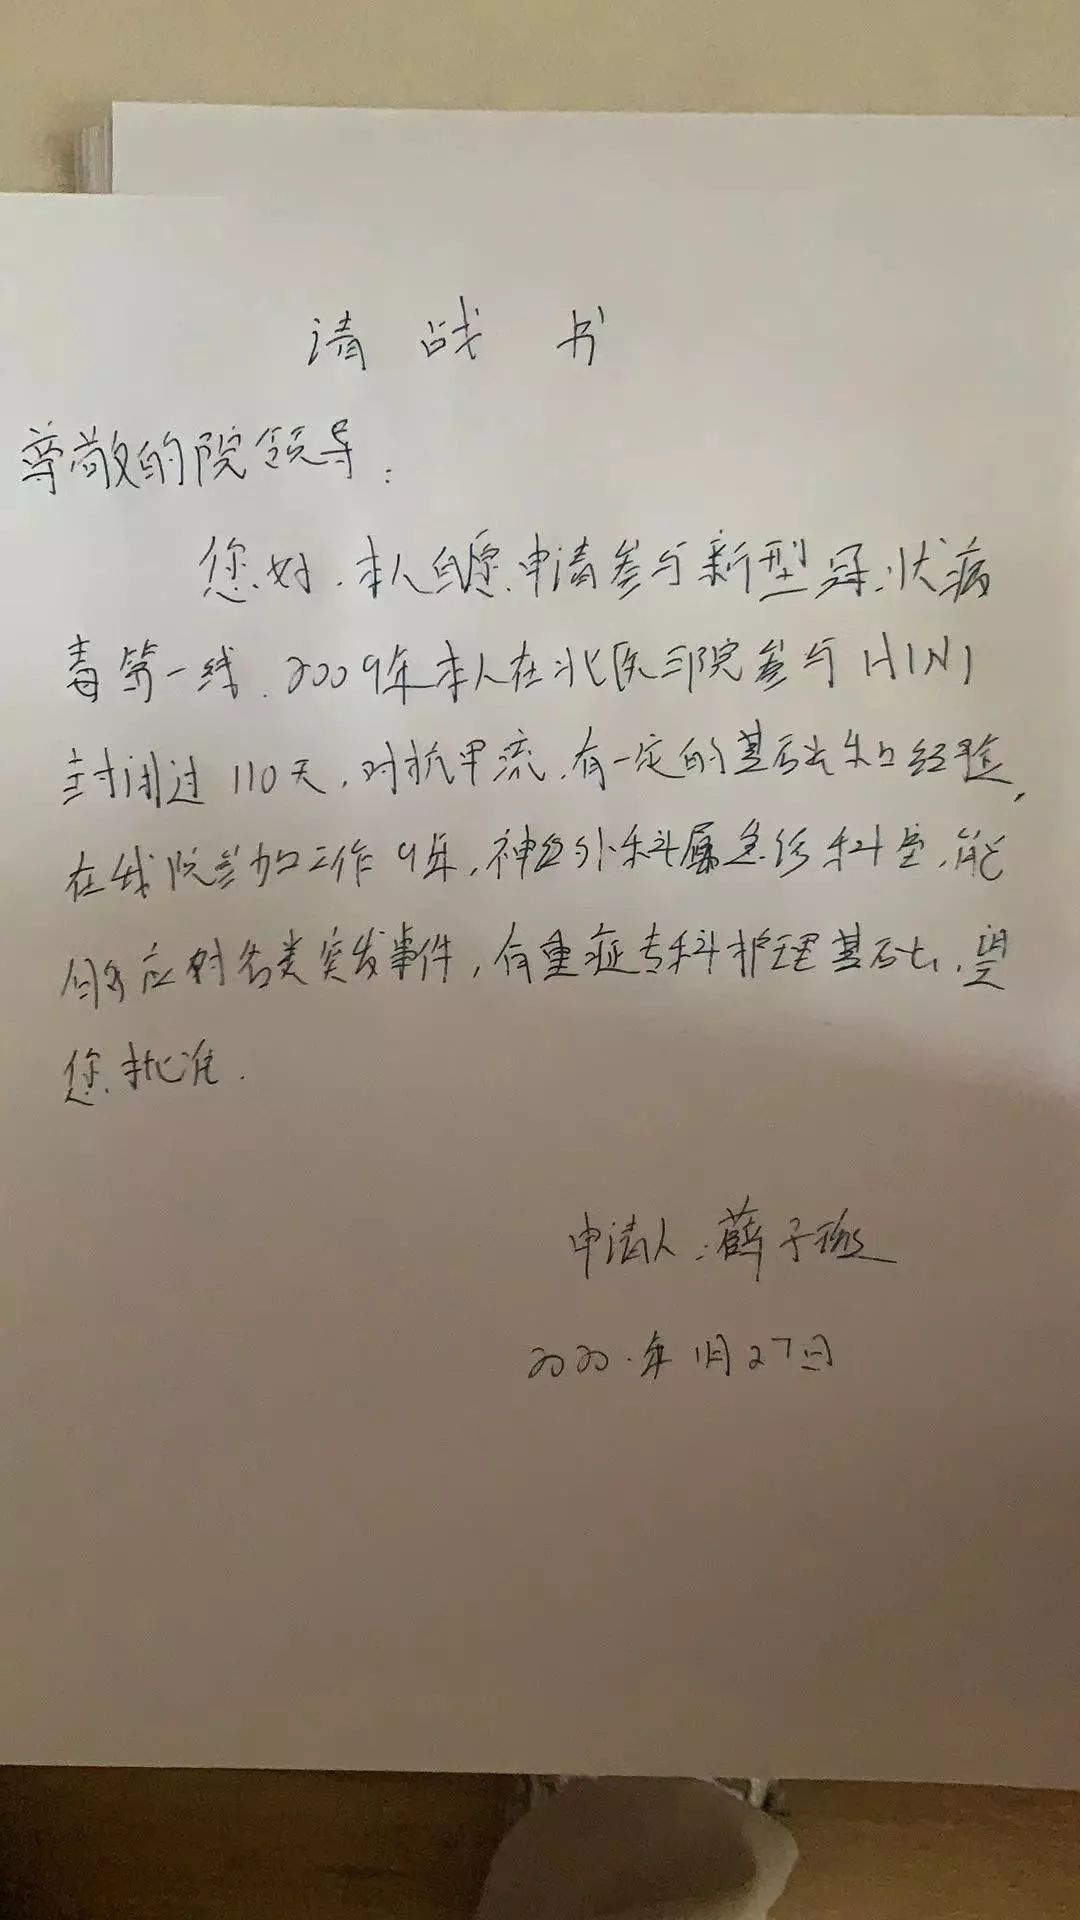 请战书
尊敬的院领导：
您好.本人自愿申请参与新型冠状病
毒第一线.2009年本人在北医三院参与H1N1
封闭过110天,对抗甲流.有一定的基础和经验,
在我院参加工作9年,神经外科属急诊科室,能
够应对各类突发事件,有重症专科护理基础,望
您批准.
申请人:薛子
2020.年1月27日